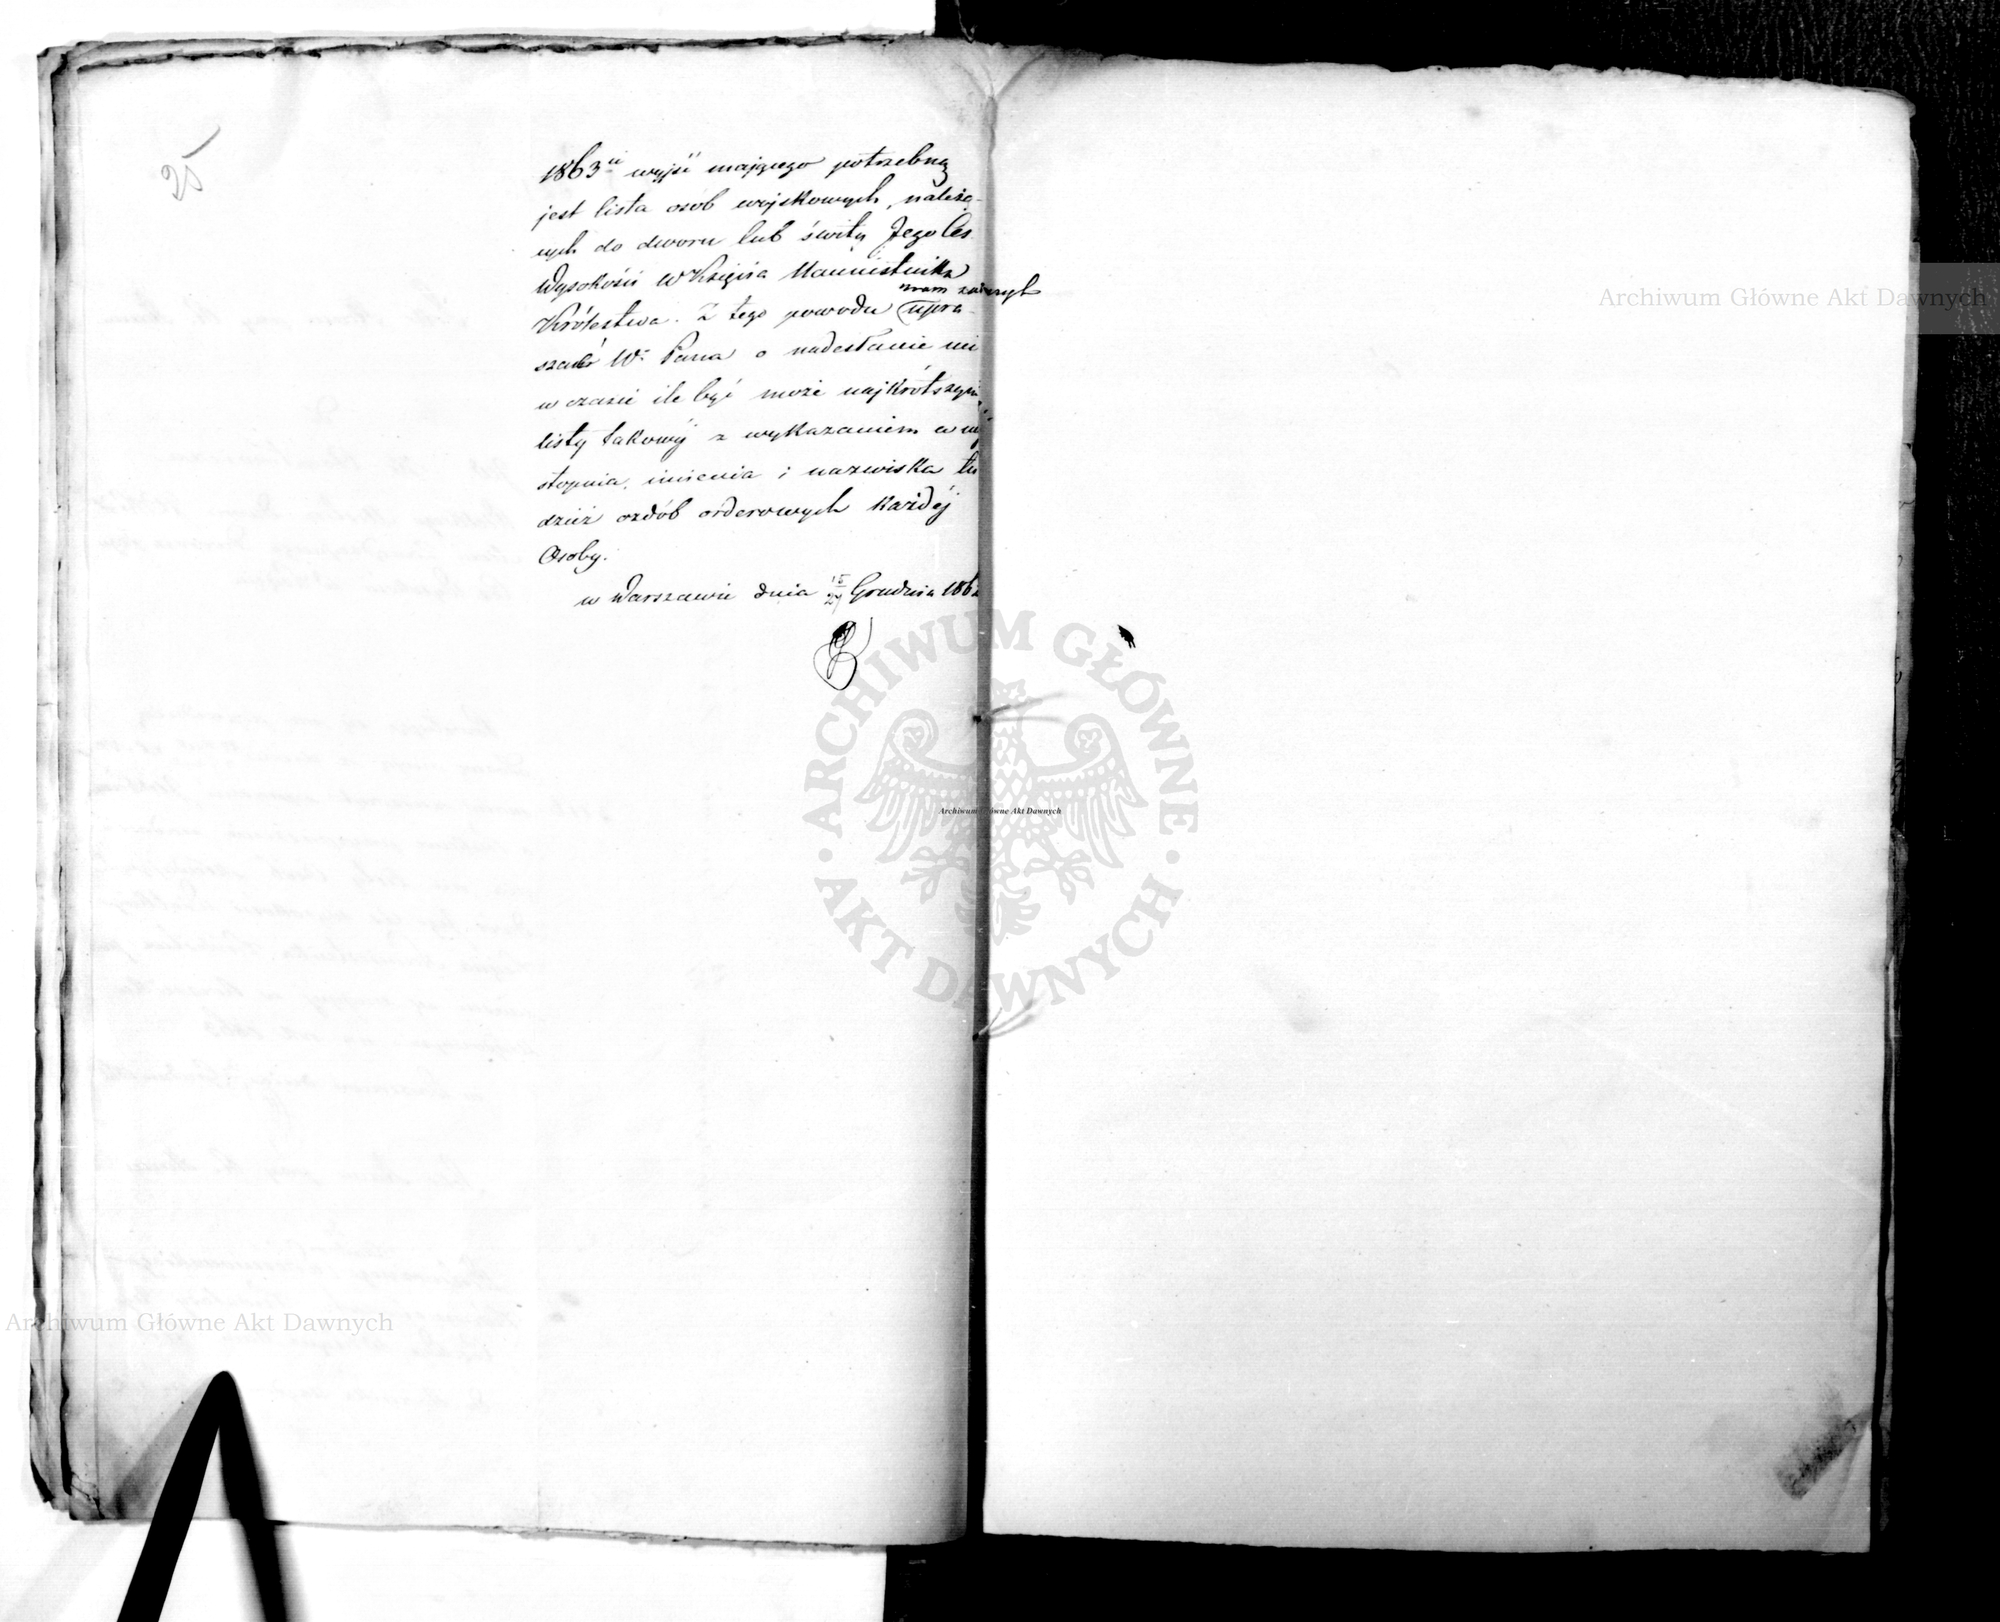 25
1863 ń wyjść mającego potrzebną
jest lista osób wojskowych, należą-
cych do dworu lub świty Jego Ces.
Wysokości W Księcia Namiestnika
mam zaszczyt
Królestwa. Z tego powodu upra-
szać W. Pana o nadesłanie mi
w czasie ile być może najkrótszym
listy takowéj z wykazaniem w niéj
stopnia, imienia i nazwiska tu
dzież ozdób orderowych każdéj
Osoby.
w Warszawie dnia 15/27 Grudnia 1862
Archiwum Główne Akt Dawnych
ARCHIWUM GŁÓWNE
AKT DAWNYCH
Archiwum Główne Akt Dawnych
Archiwum Główne Akt Dawnych